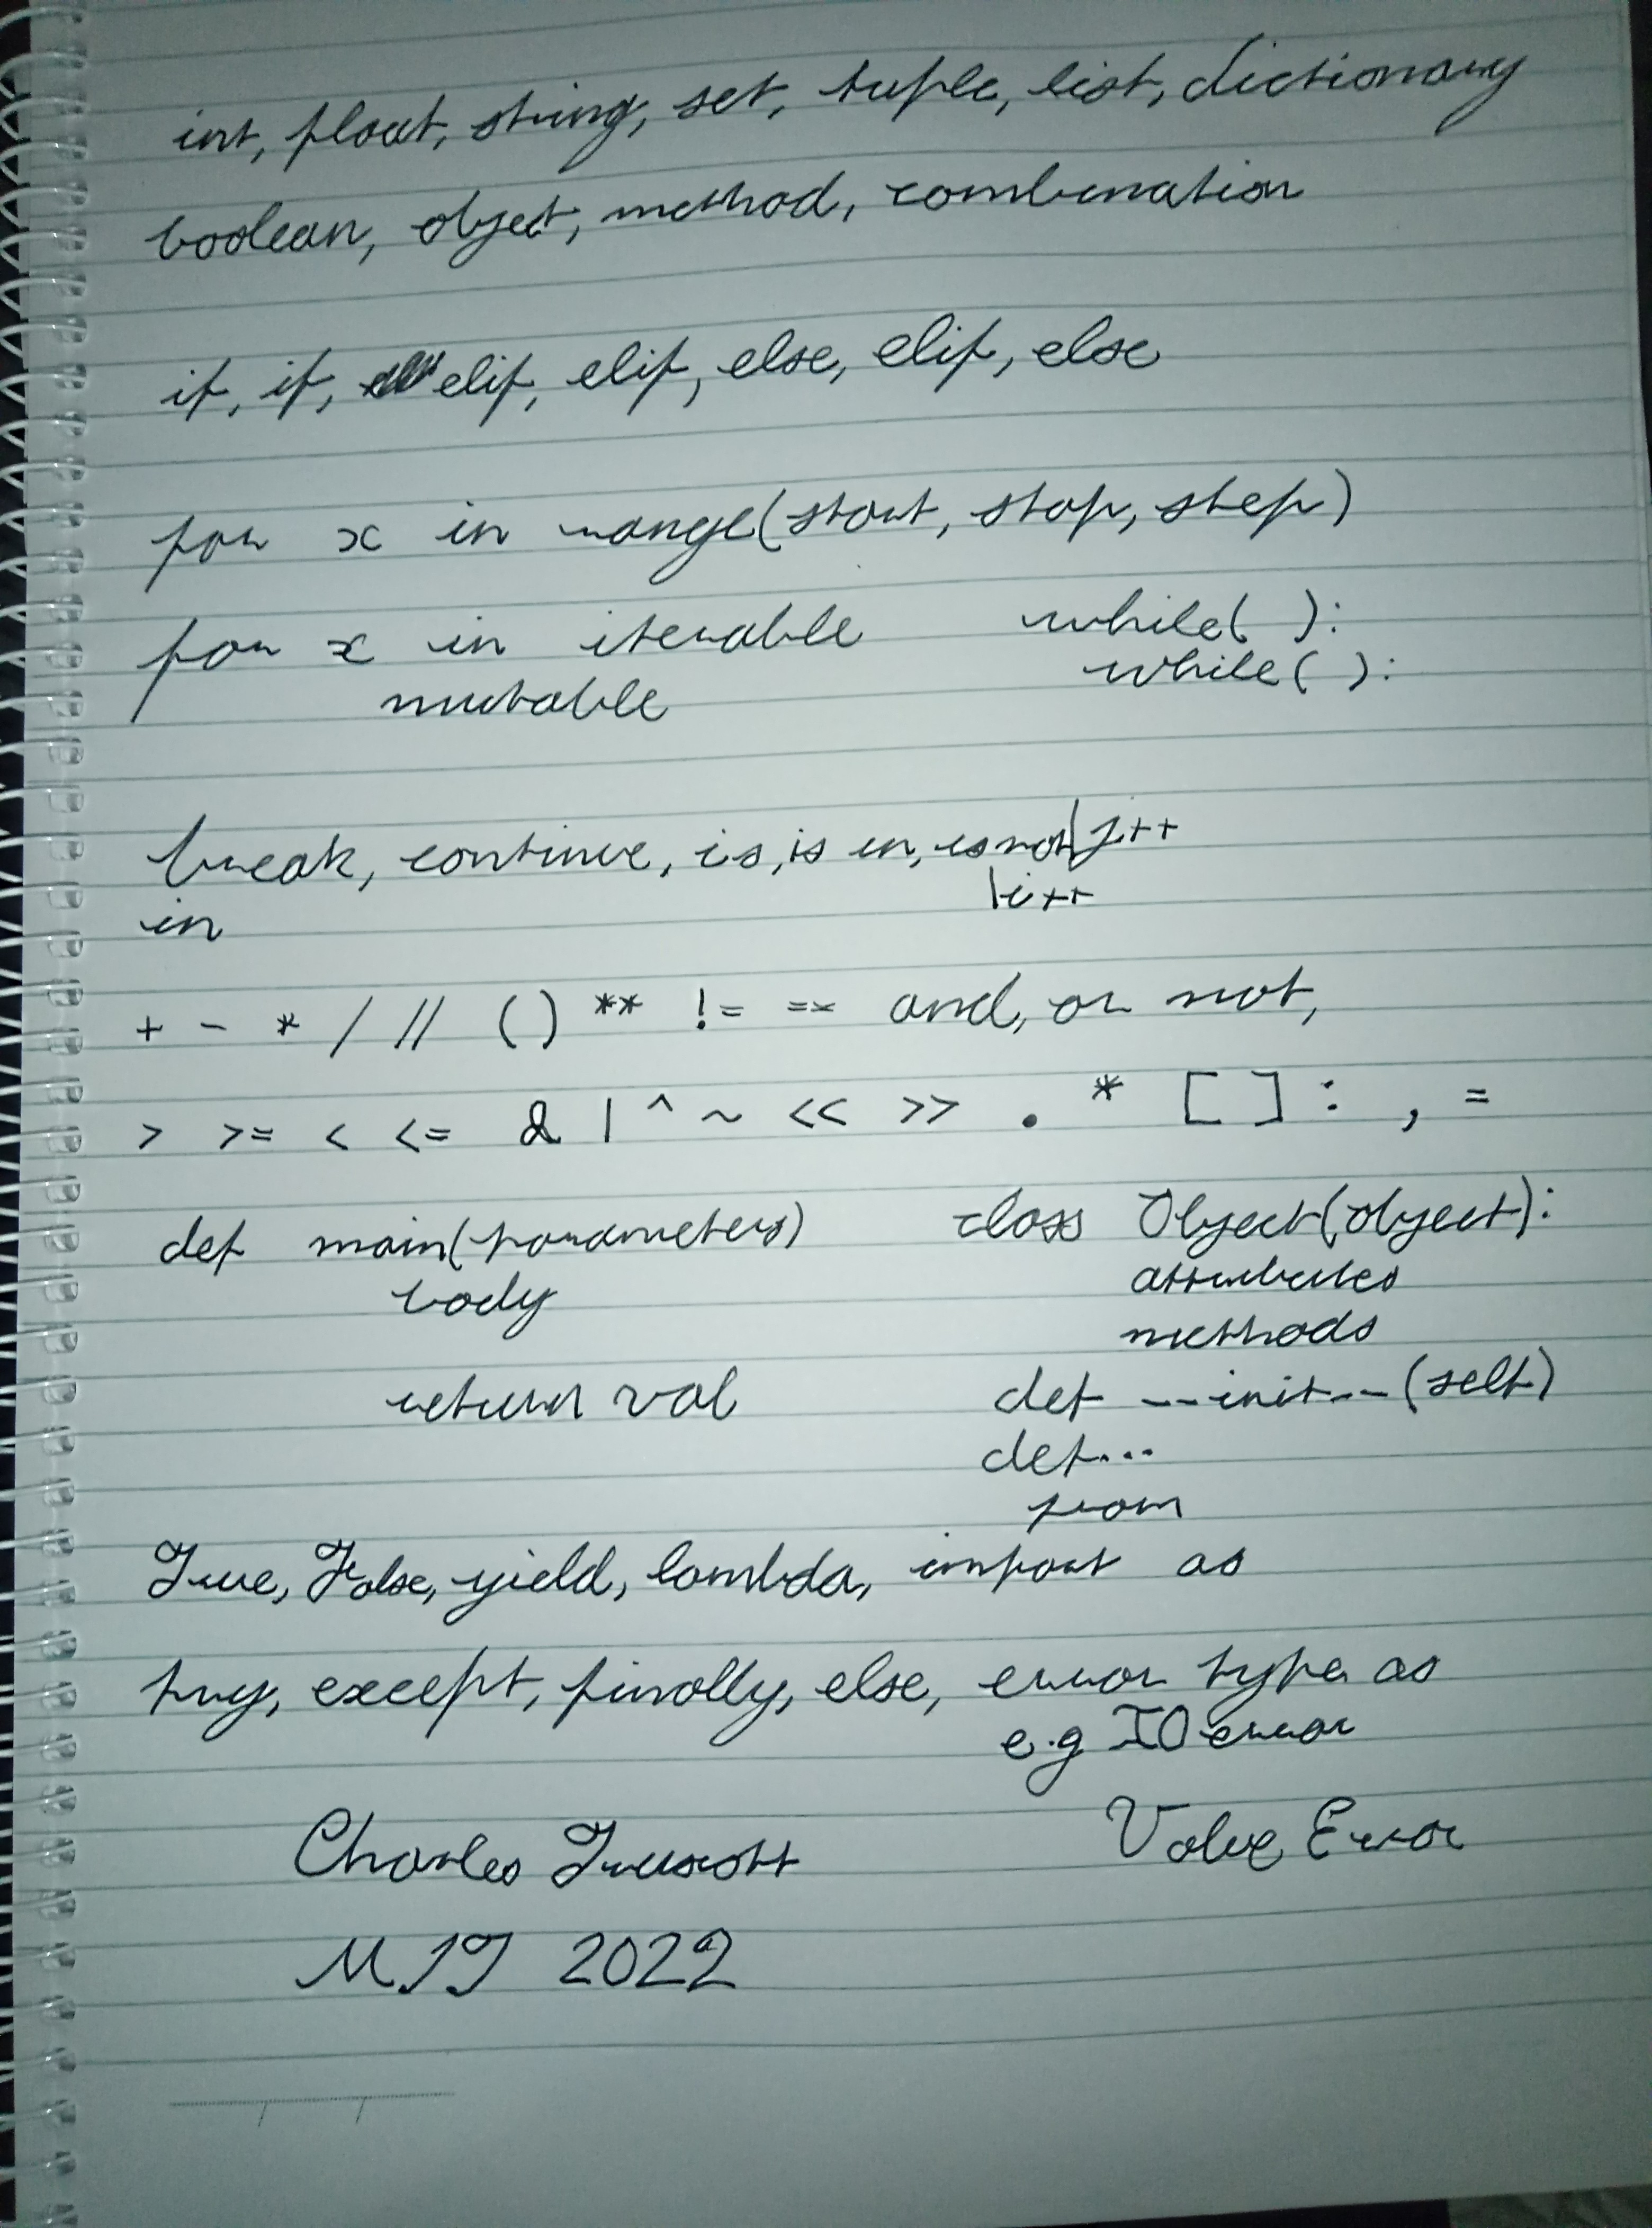 int, float, string, set, tuple, list, dictionary
boolean, object, method, combination
if, if, elif, elif, else, elif, else
for x in range(start, stop, step)
for x in iterable while( ):
mutable while( ):
break, continue, is, is in, is not j++
in i++
+ - * / // ( ) ** != == and, or not,
> >= < <= & | ^ ~ << >> . * [ ] : , =
def main(parameters) class Object(object):
body attributes
methods
return val def __init__(self)
def...
from
True, False, yield, lambda, import as
try, except, finally, else, error type as
e.g IO error
Charles Truscott Value Error
MIT 2022